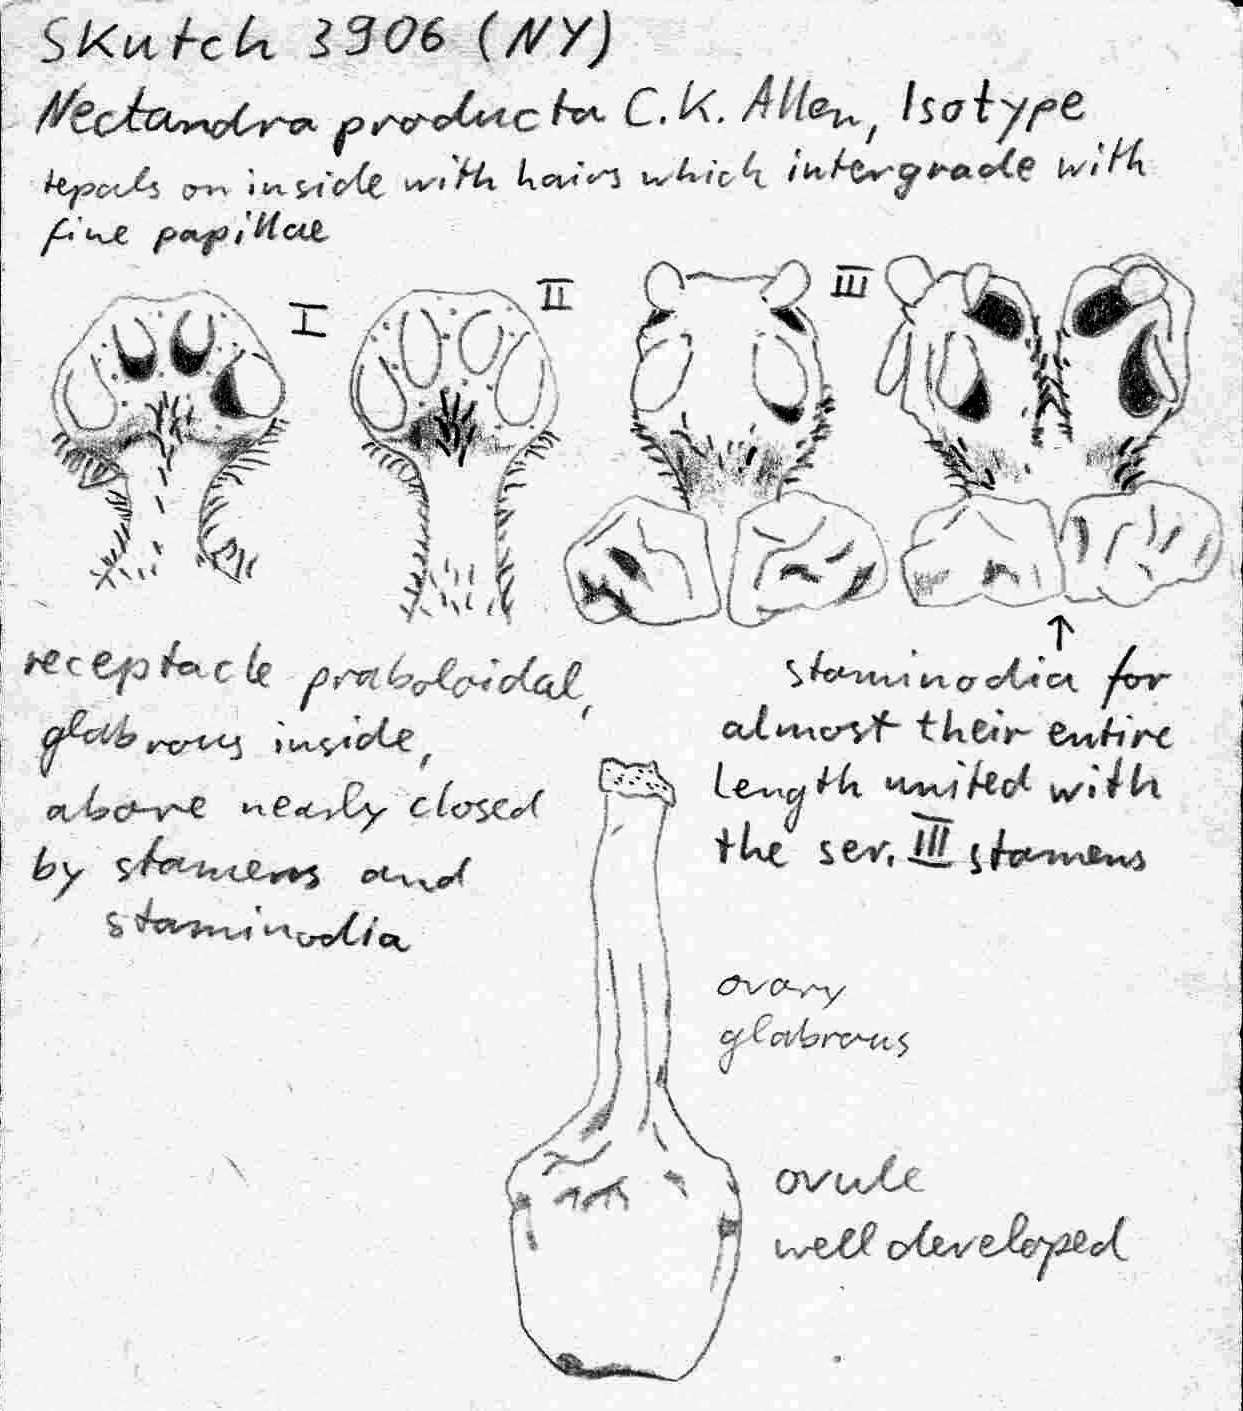 Skutch 3906 (NY)
Nectandra producta C.K. Allen, Isotype
tepals on inside with hairs which intergrade with
fine papillae
I
II
III
receptacle praboloidal,
glabrous inside,
above nearly closed
by stamens and
staminodia
↑
staminodia for
almost their entire
length united with
the ser. III stamens
ovary
glabrous
ovule
well developed